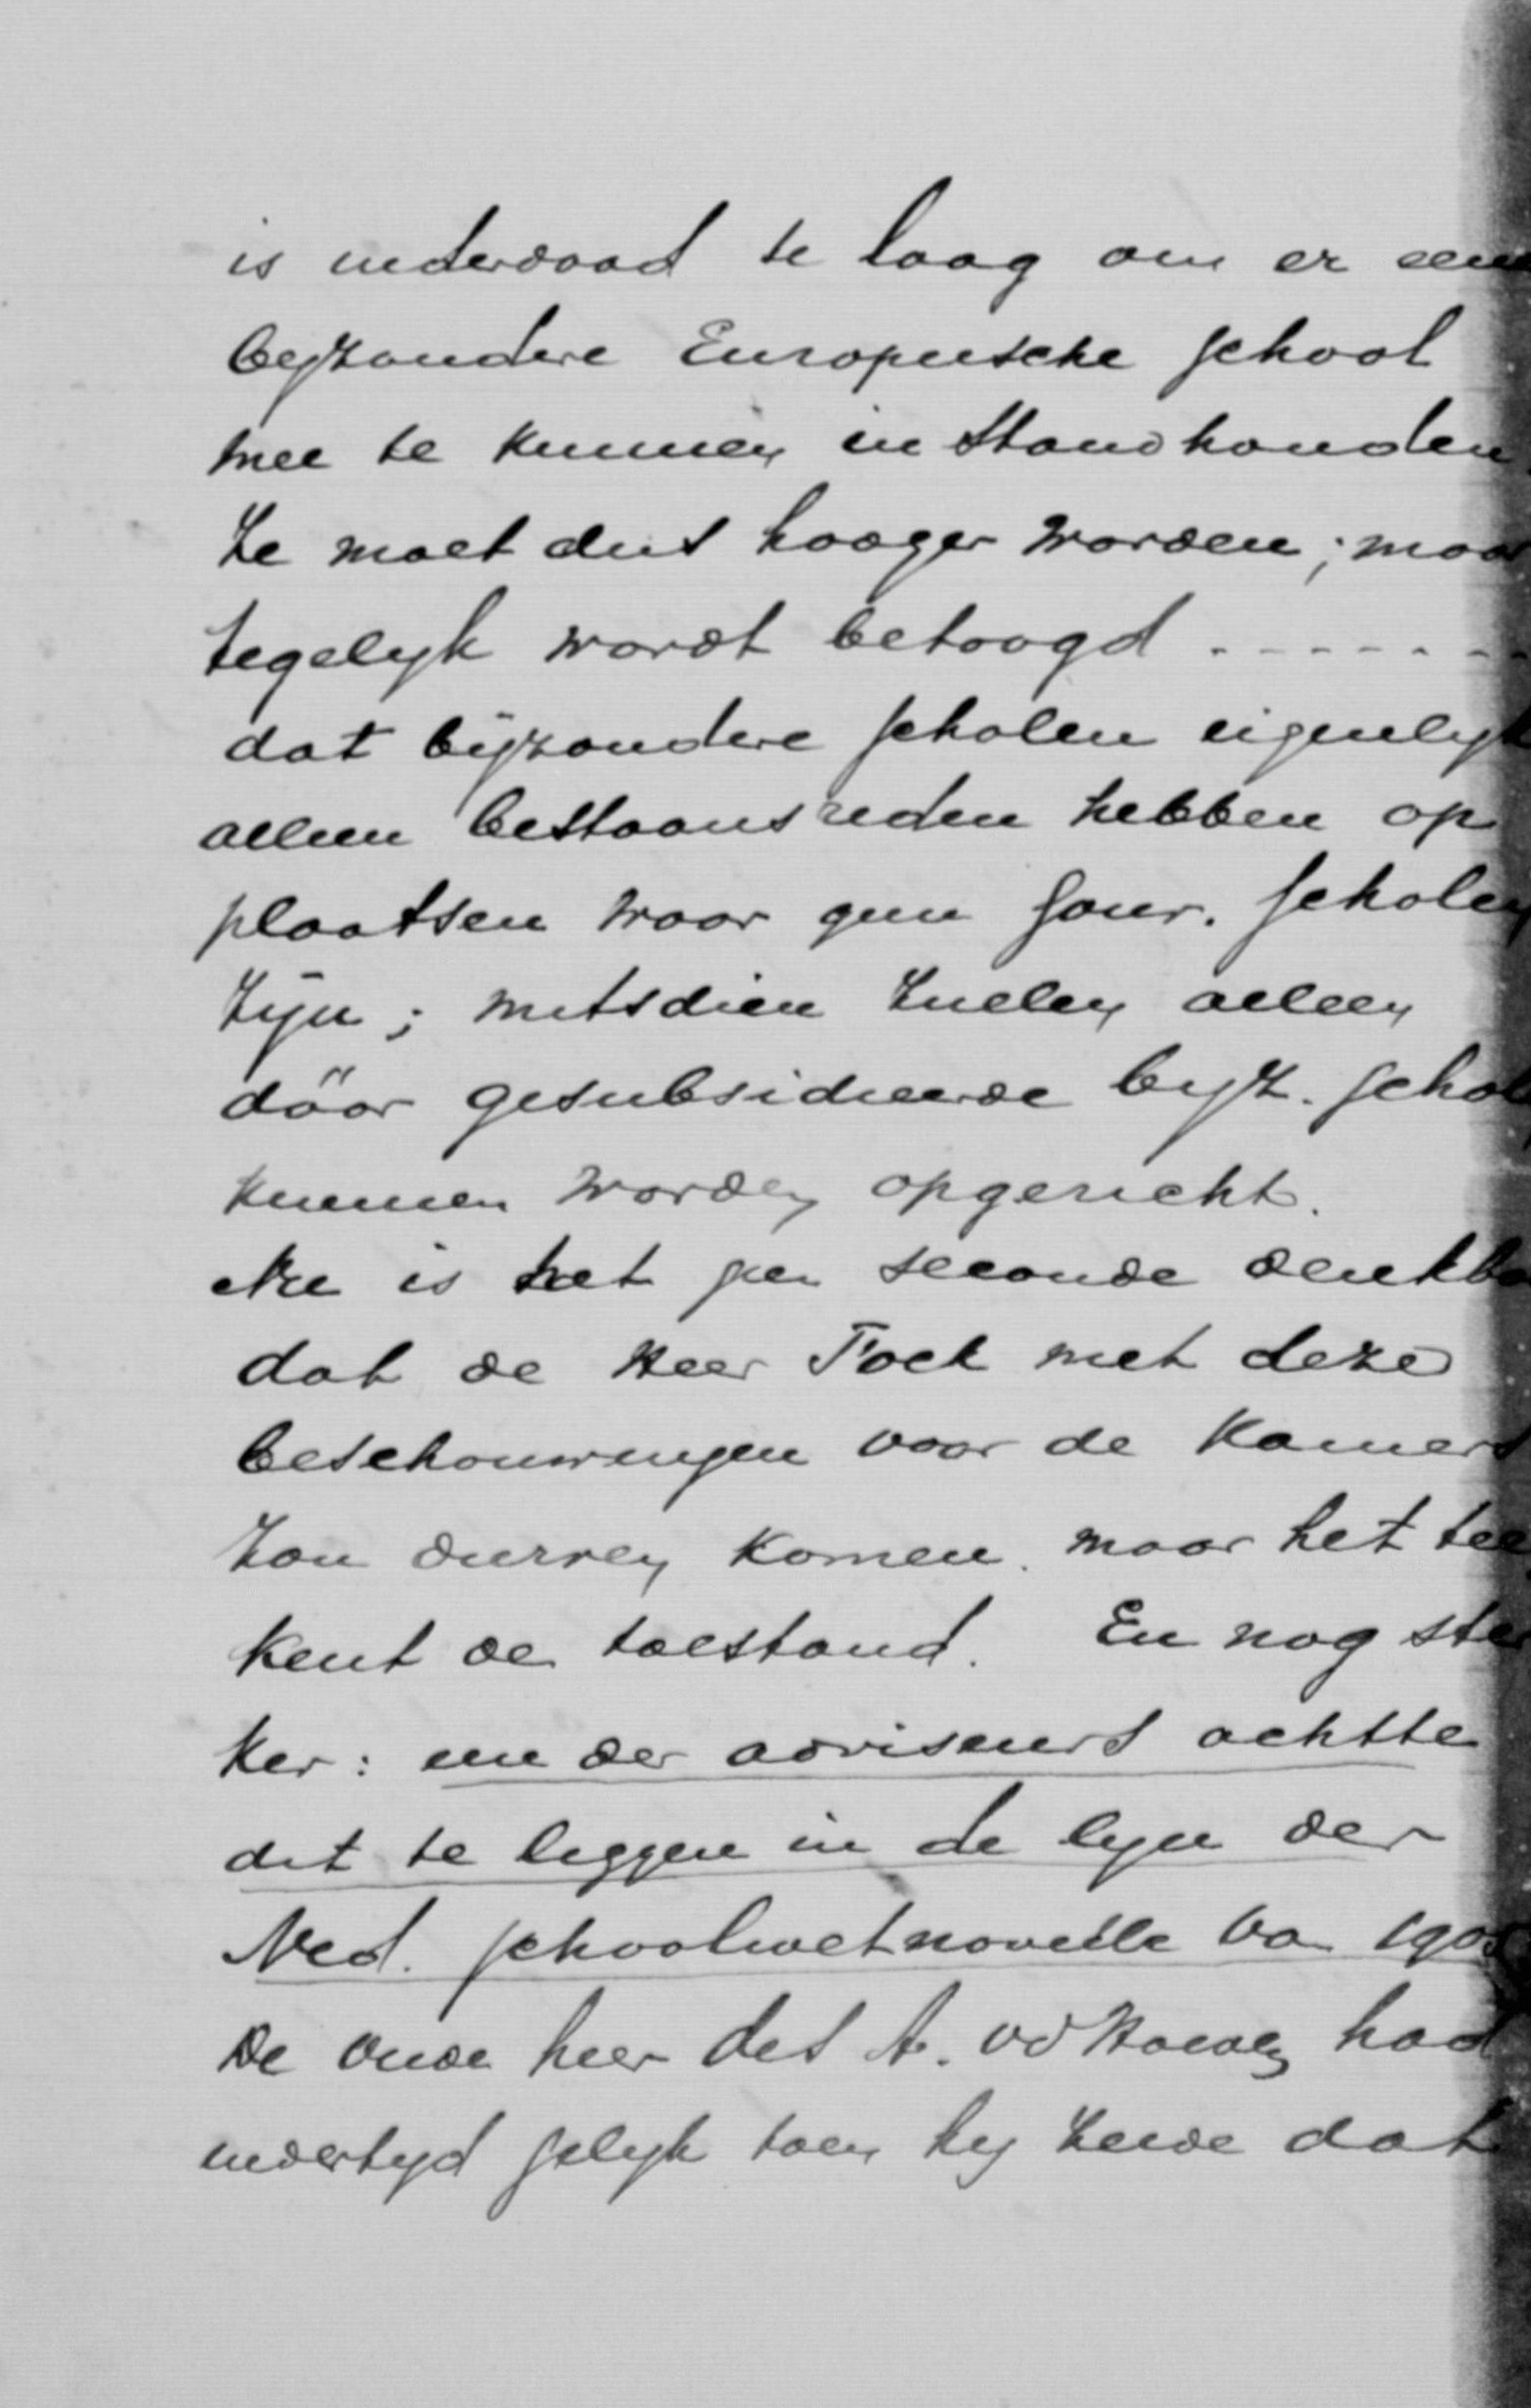 is inderdaad te laag om er een
byzondere Europeesche school
mee te kunnen in stand houden.
Ze moet dus hooger worden; maar
tegelyk wordt betoogd . - - - - - -
dat byzondere scholen eigenlyk
alleen bestaansreden hebben op
plaatsen waar geen Gouv. scholen
zyn; mitsdien zullen alleen
dáár gesubsidieerde byz. schol
kunnen worden opgericht.
Nu is het geen seconde denkba
dat de Heer Fock met deze
beschouwingen voor de Kamers
zou durven komen. maar het tee
kent de toestand. En nog ster
ker: een der adviseurs achtte
dit te liggen in de lyn der
Ned. schoolwetnovelle va 1905
De oude heer des A. vd Hoeven had
indertyd gelyk toen hy zeide dat